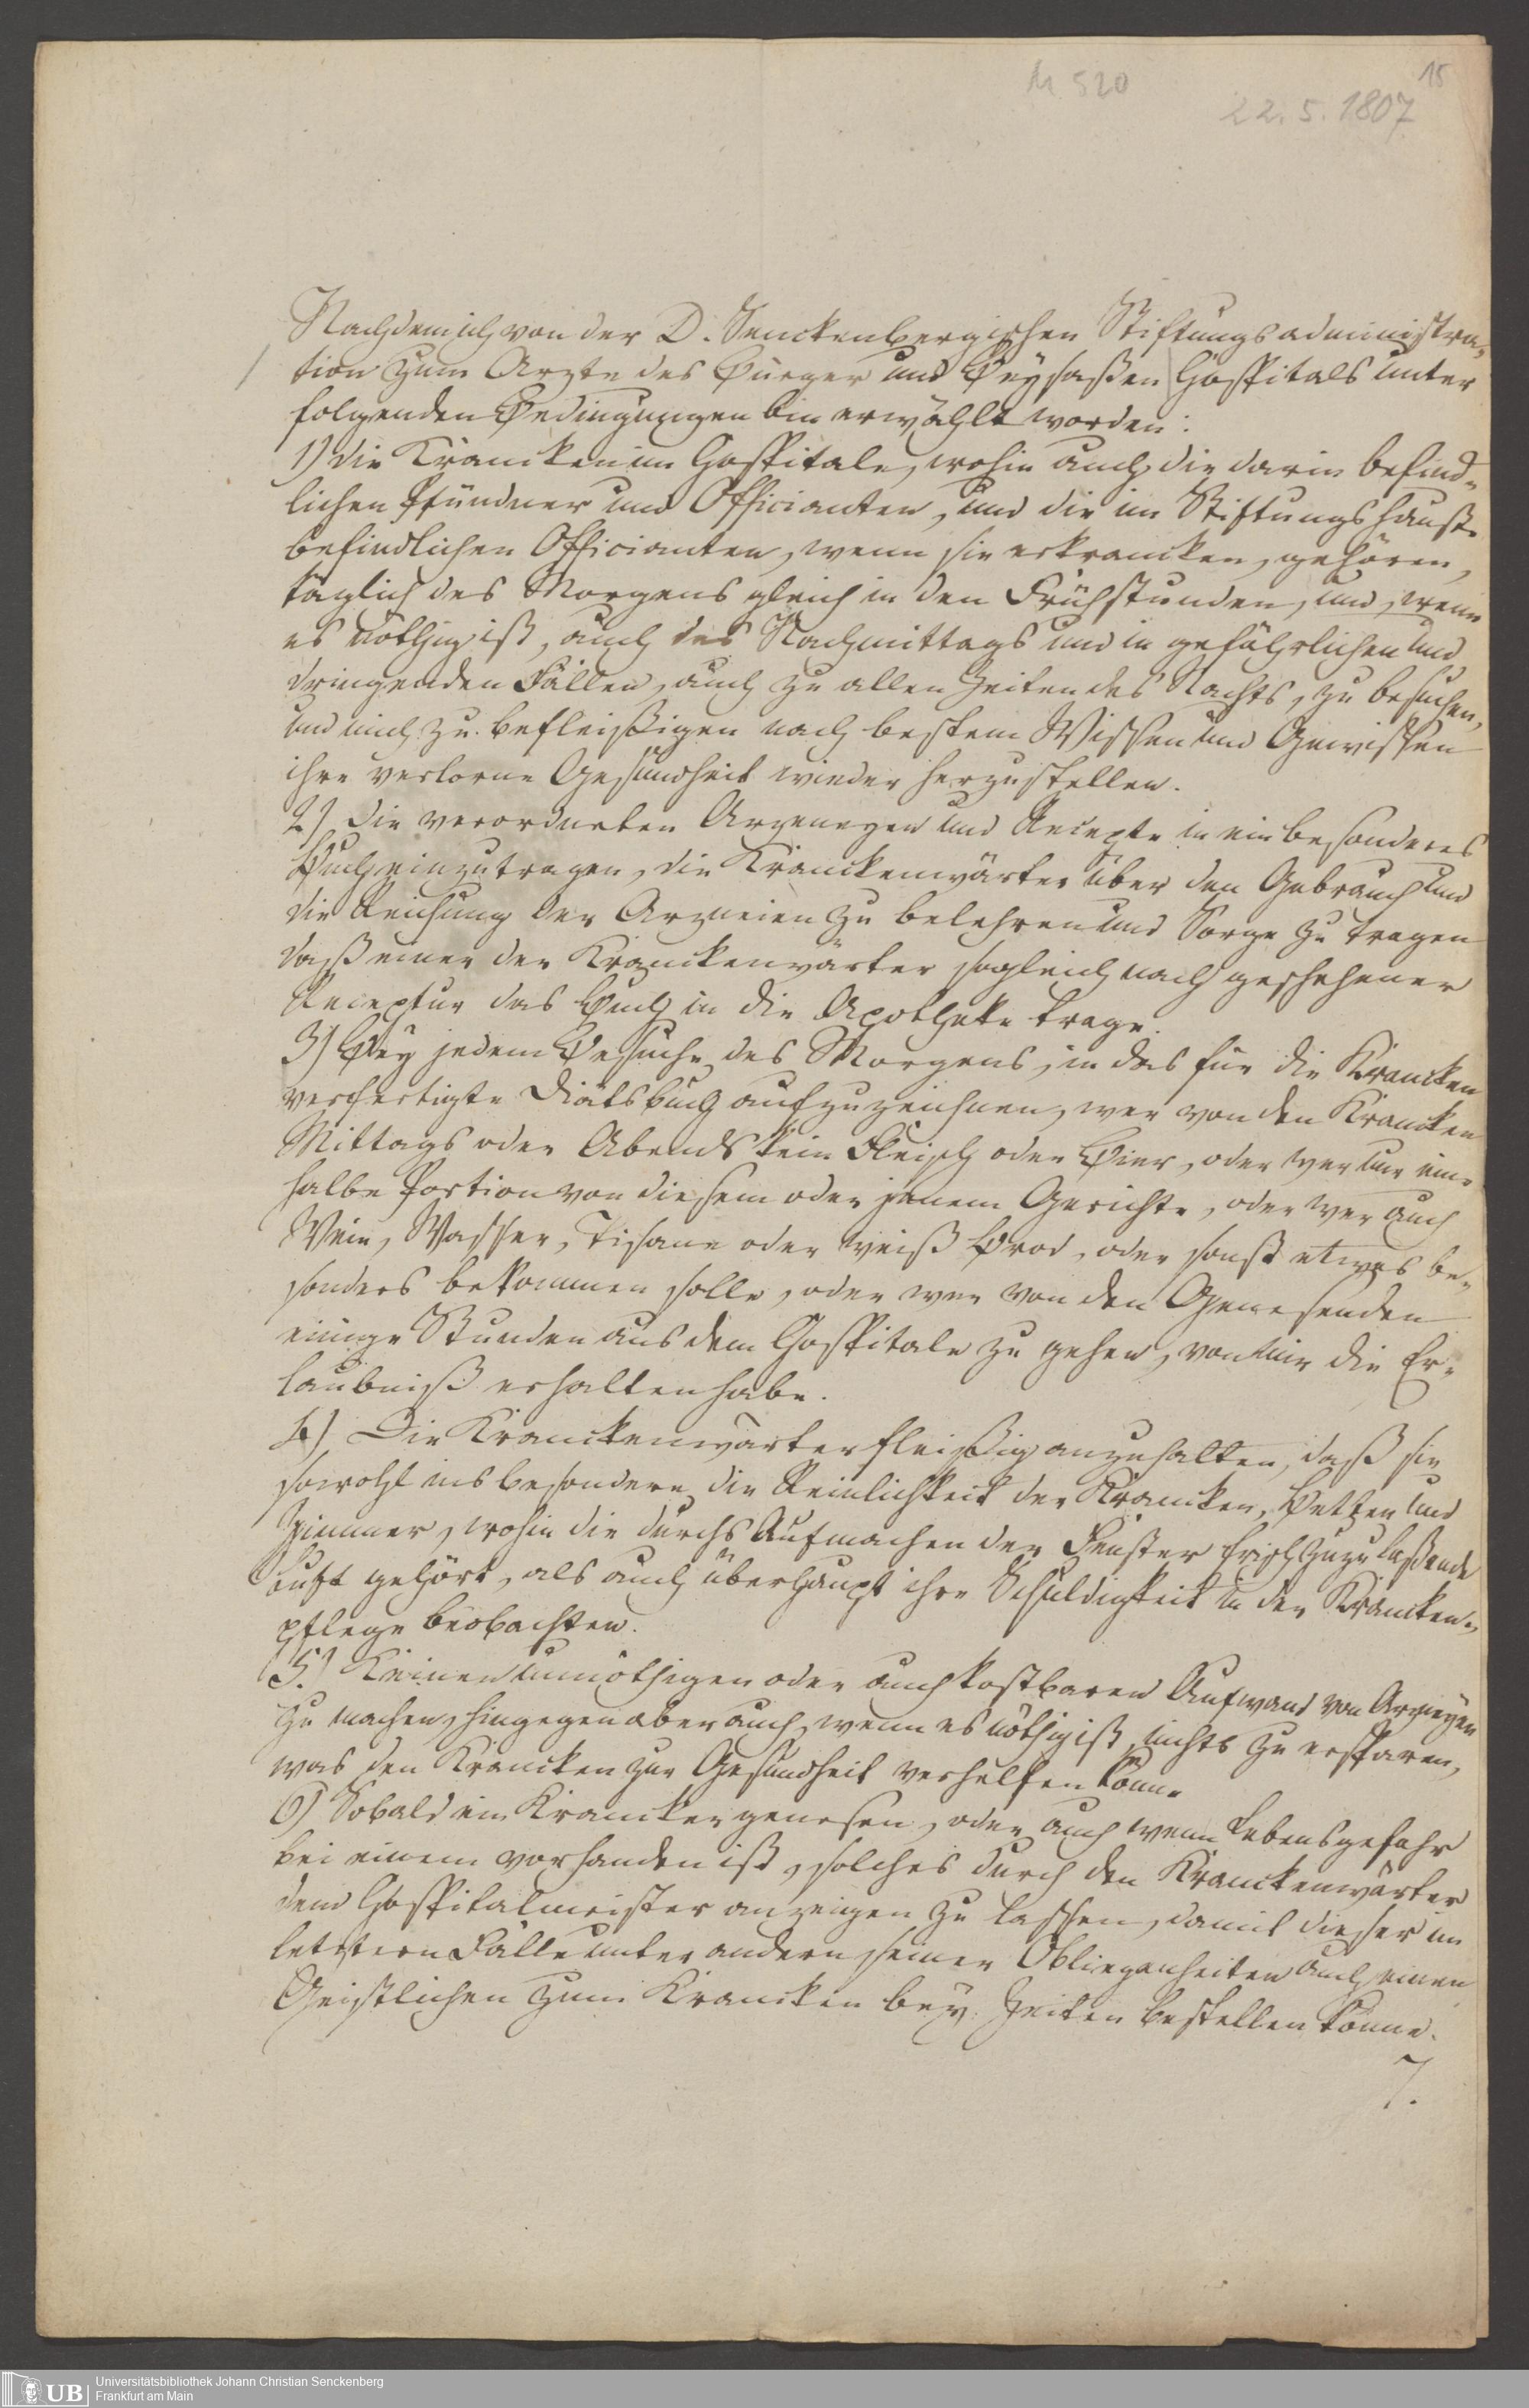 M 520
15
22. 5. 1807
Nachdem ich von der D. Senckenbergischen Stiftungsadministra-
tion zum Arzte des Bürger und Beysaßen Hospitals unter
folgenden Bedingungen bin erwählt worden:
1) Die Krancken im Hospitale, wohin auch die darin befind-
lichen Pfründner und Officianten, und die im Stiftungshauße
befindlichen Officianten, wenn sie erkrancken, gehören,
täglich des Morgens gleich in den Frühstunden, und, wenn
es nöthig ist, auch des Nachmittags und in gefährlichen und
dringenden Fällen, auch zu allen Zeiten des Nachts, zu besuchen,
und mich zu befleißigen nach bestem Wissen und Gewissen
ihre verlorne Gesundheit wieder herzustellen.
2.) Die verordneten Arzeneyen und Recepte in ein besonderes
Buch einzutragen, die Kranckenwärter über den Gebrauch und
die Reichung der Arzneien zu belehren und Sorge zu tragen
daß einer der Kranckenwärter sogleich nach geschehener
Receptur das Buch in die Apotheke trage.
3) Bey jedem Besuche des Morgens, in das für die Krancken
verfertigte Diätsbuch aufzuzeichnen, wer von den Krancken
Mittags oder Abends kein Fleisch oder Bier, oder wer nur eine
halbe Portion von diesem oder jenem Gerichte, oder wer auch
Wein, Wasser, Tisane oder weiß Brod, oder sonst etwas be-
sonders bekommen solle, oder wer von den Genesenden
einige Stunden aus dem Hospitale zu gehen, von mir die Er-
laubniß erhalten habe.
4.) Die Kranckenwärter fleißig anzuhalten, daß sie
sowohl insbesondere die Reinlichkeit der Krancken, Betten und
Zimmer, wohin die durchs Aufmachen der Fenster frisch zuzulaßende
Luft gehört, als auch überhaupt ihre Schuldigkeit in der Krancken-
pflege beobachten.
5.) Keinen unnöthigen oder auch kostbaren Aufwand von Arzneyen
zu machen, hingegen aber auch, wenn es nöthig ist, nichts zu ersparen,
was den Krancken zur Gesundheit verhelfen könne
6) Sobald ein Krancker genesen, oder auch wenn Lebensgefahr
bei einem vorhanden ist, solches durch den Kranckenwärter
dem Hospitalmeister anzeigen zu lassen, damit dieser im
letztern Falle unter andern seiner Obliegenheiten auch einen
Geistlichen zum Krancken bey Zeiten bestellen könne.
7.
UB
Universitätsbibliothek Johann Christian Senckenberg
Frankfurt am Main